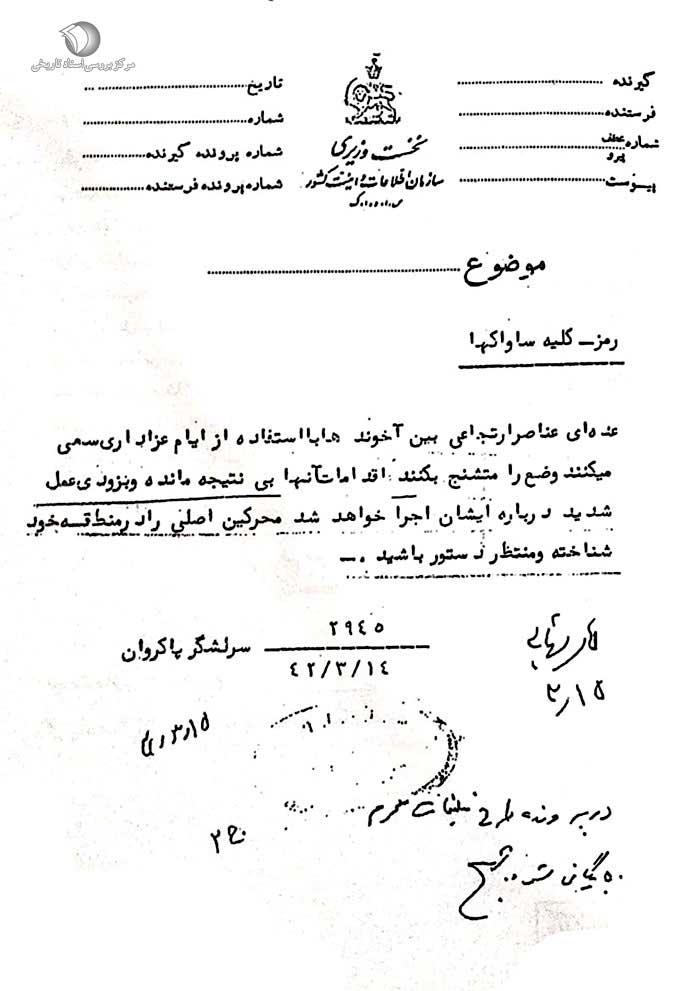 مرکز بررسی اسناد تاریخی
گیرنده
فرستنده
شماره عطف
پیرو
پیوست
نخست وزیری
سازمان اطلاعات و امنیت کشور
س.ا.و.ا.ک
تاریخ
شماره
شماره پرونده گیرنده
شماره پرونده فرستنده
موضوع
رمز- کلیه ساواکها
عده‌ای عناصر ارتجاعی بین آخوند ها با استفاده از ایام عزاداری سعی
میکنند وضع را متشنج بکنند اقدامات آنها بی نتیجه مانده و بزودی عمل
شدید درباره ایشان اجرا خواهد شد محرکین اصلی را در منطقه خود
شناخته و منتظر دستور باشید .-
۲۹۴۵
سرلشگر پاکروان
۴۲/۳/۱۴
۱۵/۳
۱۵/۳/۴۲
در پرونده طرح تبلیغات محرم
بایگانی شود